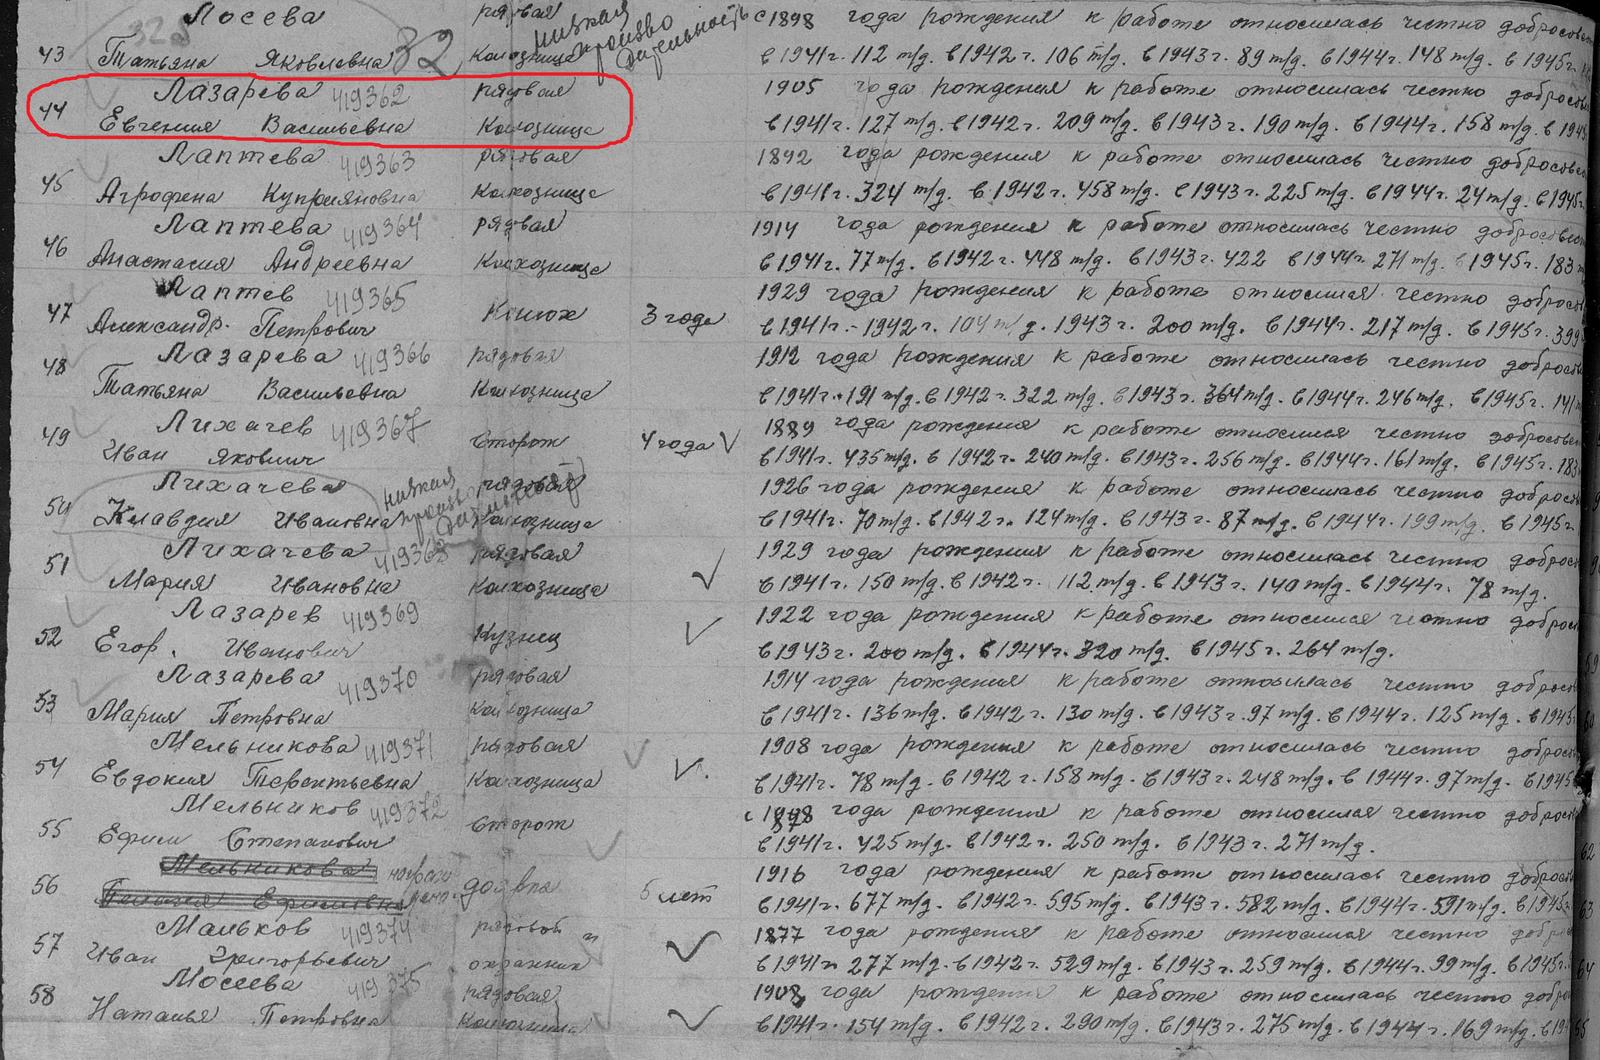 Лосева рядовая низкая произво дительность с 1898 года рождения к работе относилась честно добросове
43 Татьяна Яковлевна 32 Колхозница в 1941г. 112 т/д. в 1942г. 106 т/д. в 1943г. 89 т/д. в 1944г. 148 т/д. в 1945г.
Лазарева 419362 рядовая 1905 года рождения к работе относилась честно добросове
44 Евгения Васильевна Колхозница в 1941г. 127 т/д. в 1942г. 209 т/д. в 1943г. 190 т/д. в 1944г. 158 т/д. в 1945
Лаптева 419363 рядовая 1892 года рождения к работе относилась честно добросове
45 Агрофена Куприяновна Колхозница в 1941г. 324 т/д. в 1942г. 458 т/д. в 1943г. 225 т/д. в 1944г. 24 т/д. в 1945г.
Лаптева 419364 рядовая 1914 года рождения к работе относилась честно добросовестн
46 Анастасия Андреевна Колхозница в 1941г. 77 т/д. в 1942г. 448 т/д. в 1943г. 422 в 1944г. 271 т/д. в 1945г. 183
Лаптев 419365 1929 года рождения к работе относился честно добросо
47 Александр. Петрович Конюх 3 года в 1941г. - 1942г. 104 т/д. 1943г. 200 т/д. в 1944г. 217 т/д. в 1945г. 399
Лазарева 419366 рядовая 1912 года рождения к работе относилась честно добросове
48 Татьяна Васильевна Колхозница в 1941г. 191 т/д. в 1942г. 322 т/д. в 1943г. 364 т/д. в 1944г. 246 т/д. в 1945г. 141
Лихачев 419367 1889 года рождения к работе относился честно добросовес
49 Иван Яковлич Сторож 4 года в 1941г. 435 т/д. в 1942г. 240 т/д. в 1943г. 256 т/д. в 1944г. 161 т/д. в 1945г. 183
Лихачева низкая произво дительность рядовая 1926 года рождения к работе относилась честно добросов
50 Клавдия Ивановна Колхозница в 1941г. 70 т/д. в 1942г. 124 т/д. в 1943г. 87 т/д. в 1944г. 199 т/д. в 1945г.
Лихачева 419368 рядовая 1929 года рождения к работе относилась честно добросов
51 Мария Ивановна Колхозница в 1941г. 150 т/д. в 1942г. 112 т/д. в 1943г. 140 т/д. в 1944г. 78 т/д.
Лазарев 419369 1922 года рождения к работе относился честно добросо
52 Егор. Иванович Кузнец в 1943г. 200 т/д. в 1944г. 320 т/д. в 1945г. 264 т/д.
Лазарева 419370 рядовая 1914 года рождения к работе относилась честно добросов
53 Мария Петровна Колхозница в 1941г. 136 т/д. в 1942г. 130 т/д. в 1943г. 97 т/д. в 1944г. 125 т/д. в 1945
Мельникова 419371 рядовая 1908 года рождения к работе относилась честно добросо
54 Евдокия Терентьевна Колхозница в 1941г. 78 т/д. в 1942г. 158 т/д. в 1943г. 248 т/д. в 1944г. 97 т/д. в 1945
Мельников 419372 с года рождения к работе относился честно добросов
55 Ефим Степанович Сторож в 1941г. 425 т/д. в 1942г. 250 т/д. в 1943г. 271 т/д.
Мельникова 1916 года рождения к работе относилась честно добросов
56 Ефимовна доярка 5 лет в 1941г. 677 т/д. в 1942г. 595 т/д. в 1943г. 582 т/д. в 1944г. 591 т/д. в 1945г.
Мальков 419374 рядовой и 1877 года рождения к работе относился честно добро
57 Иван Григорьевич охранник в 1941г. 277 т/д. в 1942г. 529 т/д. в 1943г. 259 т/д. в 1944г. 99 т/д. в 1945г.
Мосеева 419375 рядовая 1908 года рождения к работе относилась честно добро
58 Наталья Петровна Колхозница в 1941г. 154 т/д. в 1942г. 290 т/д. в 1943г. 275 т/д. в 1944г. 169 т/д. в 19